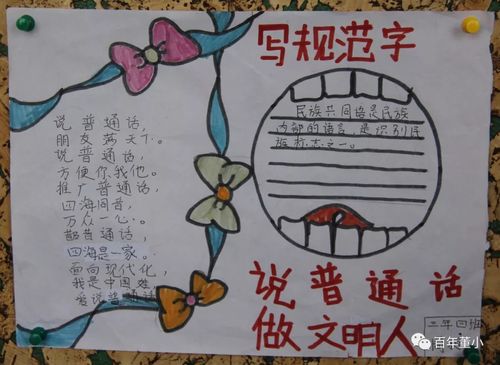 写规范字
民族共同语是民族
内部的语言，是识别民
族标志之一。
说普通话，
朋友满天下。
说普通话，
方便你我他。
推广普通话，
四海同音，
万众一心。
都普通话，
四海是一家。
面向现代化，
我是中国娃，
爱说普通话
说普通话
做文明人
三年四班
百年董小